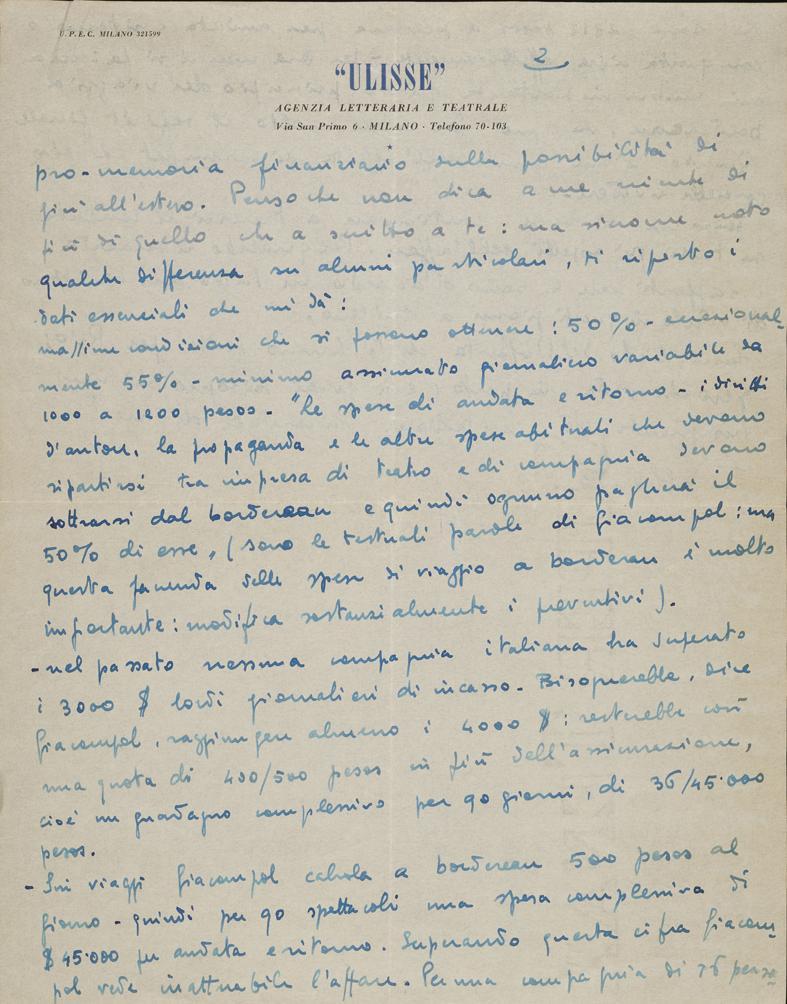 U.P.E.C. MILANO 321599
2
"ULISSE"
AGENZIA LETTERARIA E TEATRALE
Via San Primo 6 · MILANO · Telefono 70-103
pro-memoria finanziario sulla possibilità di
più all'estero. Penso che non dica a me niente di
più di quello che a scritto a te: ma siccome noto
qualche differenza su alcuni particolari, ti riporto i
dati essenziali che mi dà:
massime condizioni che si possono ottenere: 50% - eccezional-
mente 55% - minimo assicurato giornaliero variabile da
1000 a 1200 pesos - "Le spese di andata e ritorno - i diritti
d'autore, la propaganda e le altre spese abituali che devono
ripartirsi tra impresa di teatro e di compagnia devono
sottrarsi dal bordereau e quindi ognuno pagherà il
50% di esse, (sono le testuali parole di Giacompol: ma
questa faccenda delle spese di viaggio a bordereau è molto
importante: modifica sostanzialmente i preventivi).
- nel passato nessuna compagnia italiana ha superato
i 3000 $ lordi giornalieri di incasso. Bisognerebbe, dice
Giacompol, raggiungere almeno i 4000 $: resterebbe così
una quota di 400/500 pesos in più dell'assicurazione,
cioè un guadagno complessivo per 90 giorni, di 36/45.000
pesos.
- Sui viaggi Giacompol calcola a bordereau 500 pesos al
giorno - quindi per 90 spettacoli una spesa complessiva di
$ 45.000 per andata e ritorno. Superando questa cifra Giacom-
pol vede inattuabile l'affare. Per una compagnia di 26 perso